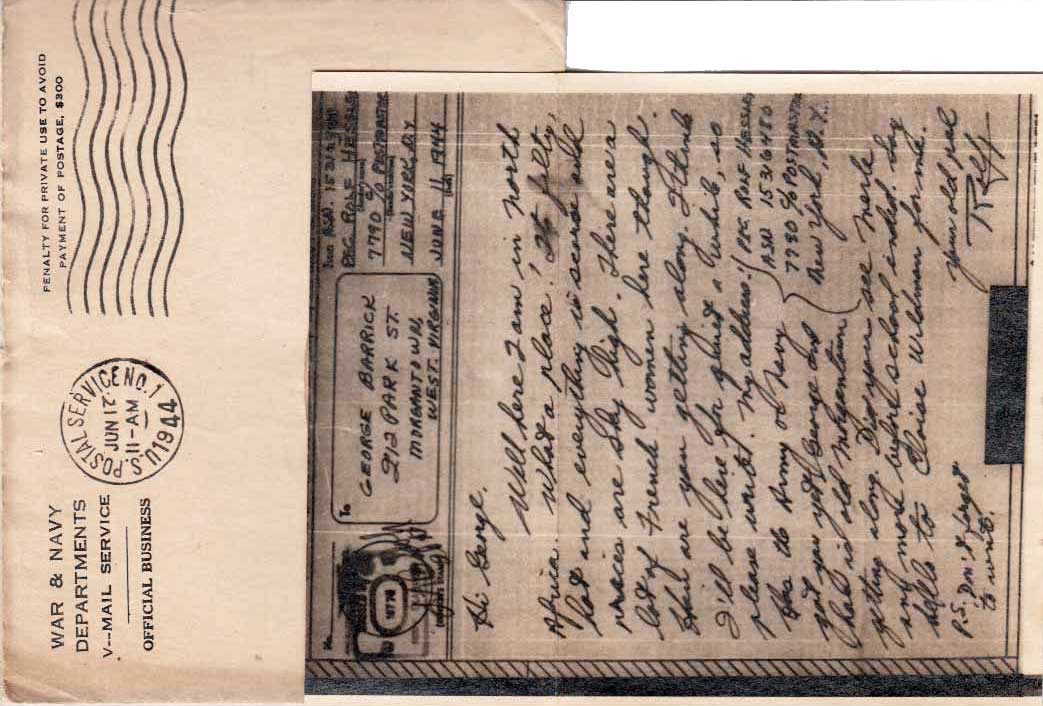 WAR & NAVY
DEPARTMENTS
V--MAIL SERVICE
OFFICIAL BUSINESS
U.S. POSTAL SERVICE NO. 1
JUN 12
11-AM
1944
PENALTY FOR PRIVATE USE TO AVOID
PAYMENT OF POSTAGE, $300
No.
To
GEORGE BARRICK
212 PARK ST.
MORGANTOWN,
WEST. VIRGINIA
From
PFC. ROLF HESSLER
7790 c/o POSTMASTER
NEW YORK, N.Y.
JUNE 11 1944
Hi George.
Well here I am in North
Africa. What a place! It filty,
hot and everything is scarce and
prices are sky high. There are a
lot of French women here though.
How are you getting along. I think
I'll be here for quiet a while, so
please write. My address:
PFC. ROLF HESSLER
ASN 15316480
7790 c/o POSTMASTER
New York, N.Y.
Has the Army or Navy
got you yet George and
how is old Morgantown
getting along. Did you see Merle
any more before school ended. Say
hello to Eloise Wildman for me.
your old pal
Rolf
P.S. Don't forget
to write.